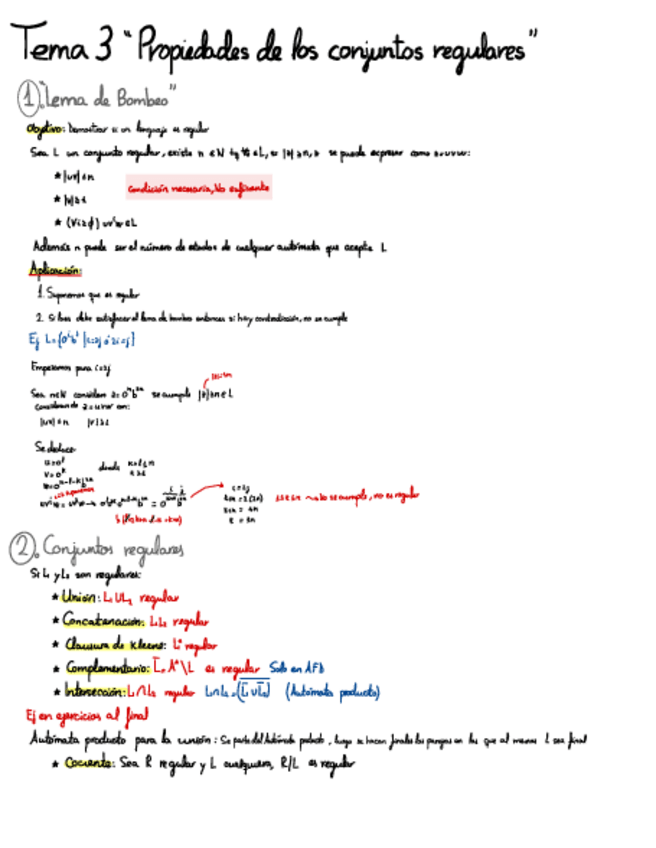 Tema 3 "Propiedades de los conjuntos regulares"
1. "Lema de Bombeo"
Objetivo: Demostrar si un lenguaje es regular
Sea L un conjunto regular, existe n ∈ N tq ∀z ∈ L, si |z| ≥ n, z se puede expresar como z=uvw:
* |uv| ≤ n
* |v| ≥ 1
Condición necesaria, No suficiente
* (∀i≥0) uvⁱw ∈ L
Además n puede ser el número de estados de cualquier autómata que acepte L
Aplicación:
1. Suponemos que es regular
2. Si lo es debe satisfacer el lema de bombeo entonces si hay contradicción, no se cumple
Ej L={0ⁱbʲ | i=2j ó 2i=j}
Empezamos para i=2j
Sea n∈N se cumple |z|≥n ∈ L
|uv| ≤ n |v| ≥ 1
Se deduce
donde
no se cumple, no es regular
2. Conjuntos regulares
Si L₁ y L₂ son regulares:
* Unión: L₁UL₂ regular
* Concatenación: L₁L₂ regular
* Clausura de Kleene: L* regular
* Complementario: L̅, A*\L es regular Solo en AFD
* Intersección: L₁∩L₂ regular (Autómata producto)
Ej en ejercicios al final
Autómata producto para la unión: Se parte del Autómata producto, luego se hacen finales las parejas en las que al menos 1 sea final
* Cociente: Sea R regular y L cualquiera, R/L es regular